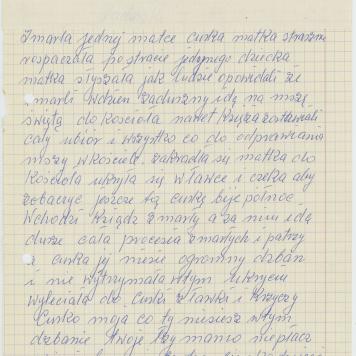 Zmarła jednej matce curka matka strasznie
rospaczała po stracie jedynego dziecka
matka słyszała jak ludzie opowidali że
zmarli w dzień zaduszny idą na mszę
świętą do kościoła nawet księża zostawiali
cały ubiór i wszystko co do odprawiania
mszy w kościele. zakradła się matka do
kościoła ukryła się w ławce i czeka aby
zobaczyć jeszcze tą curkę bije północ
wchodzi ksiądz zmarły a za nim idą
dusze cała procesia zmarłych i patrzy
a curka jej niesie ogromny dzban
i nie wytrzymała w tym ukryciu
wyleciała do curki z ławki i krzyczy
Curko moja co ty niesiesz w tym
dzbanie twoje łzy mamo niepłacz